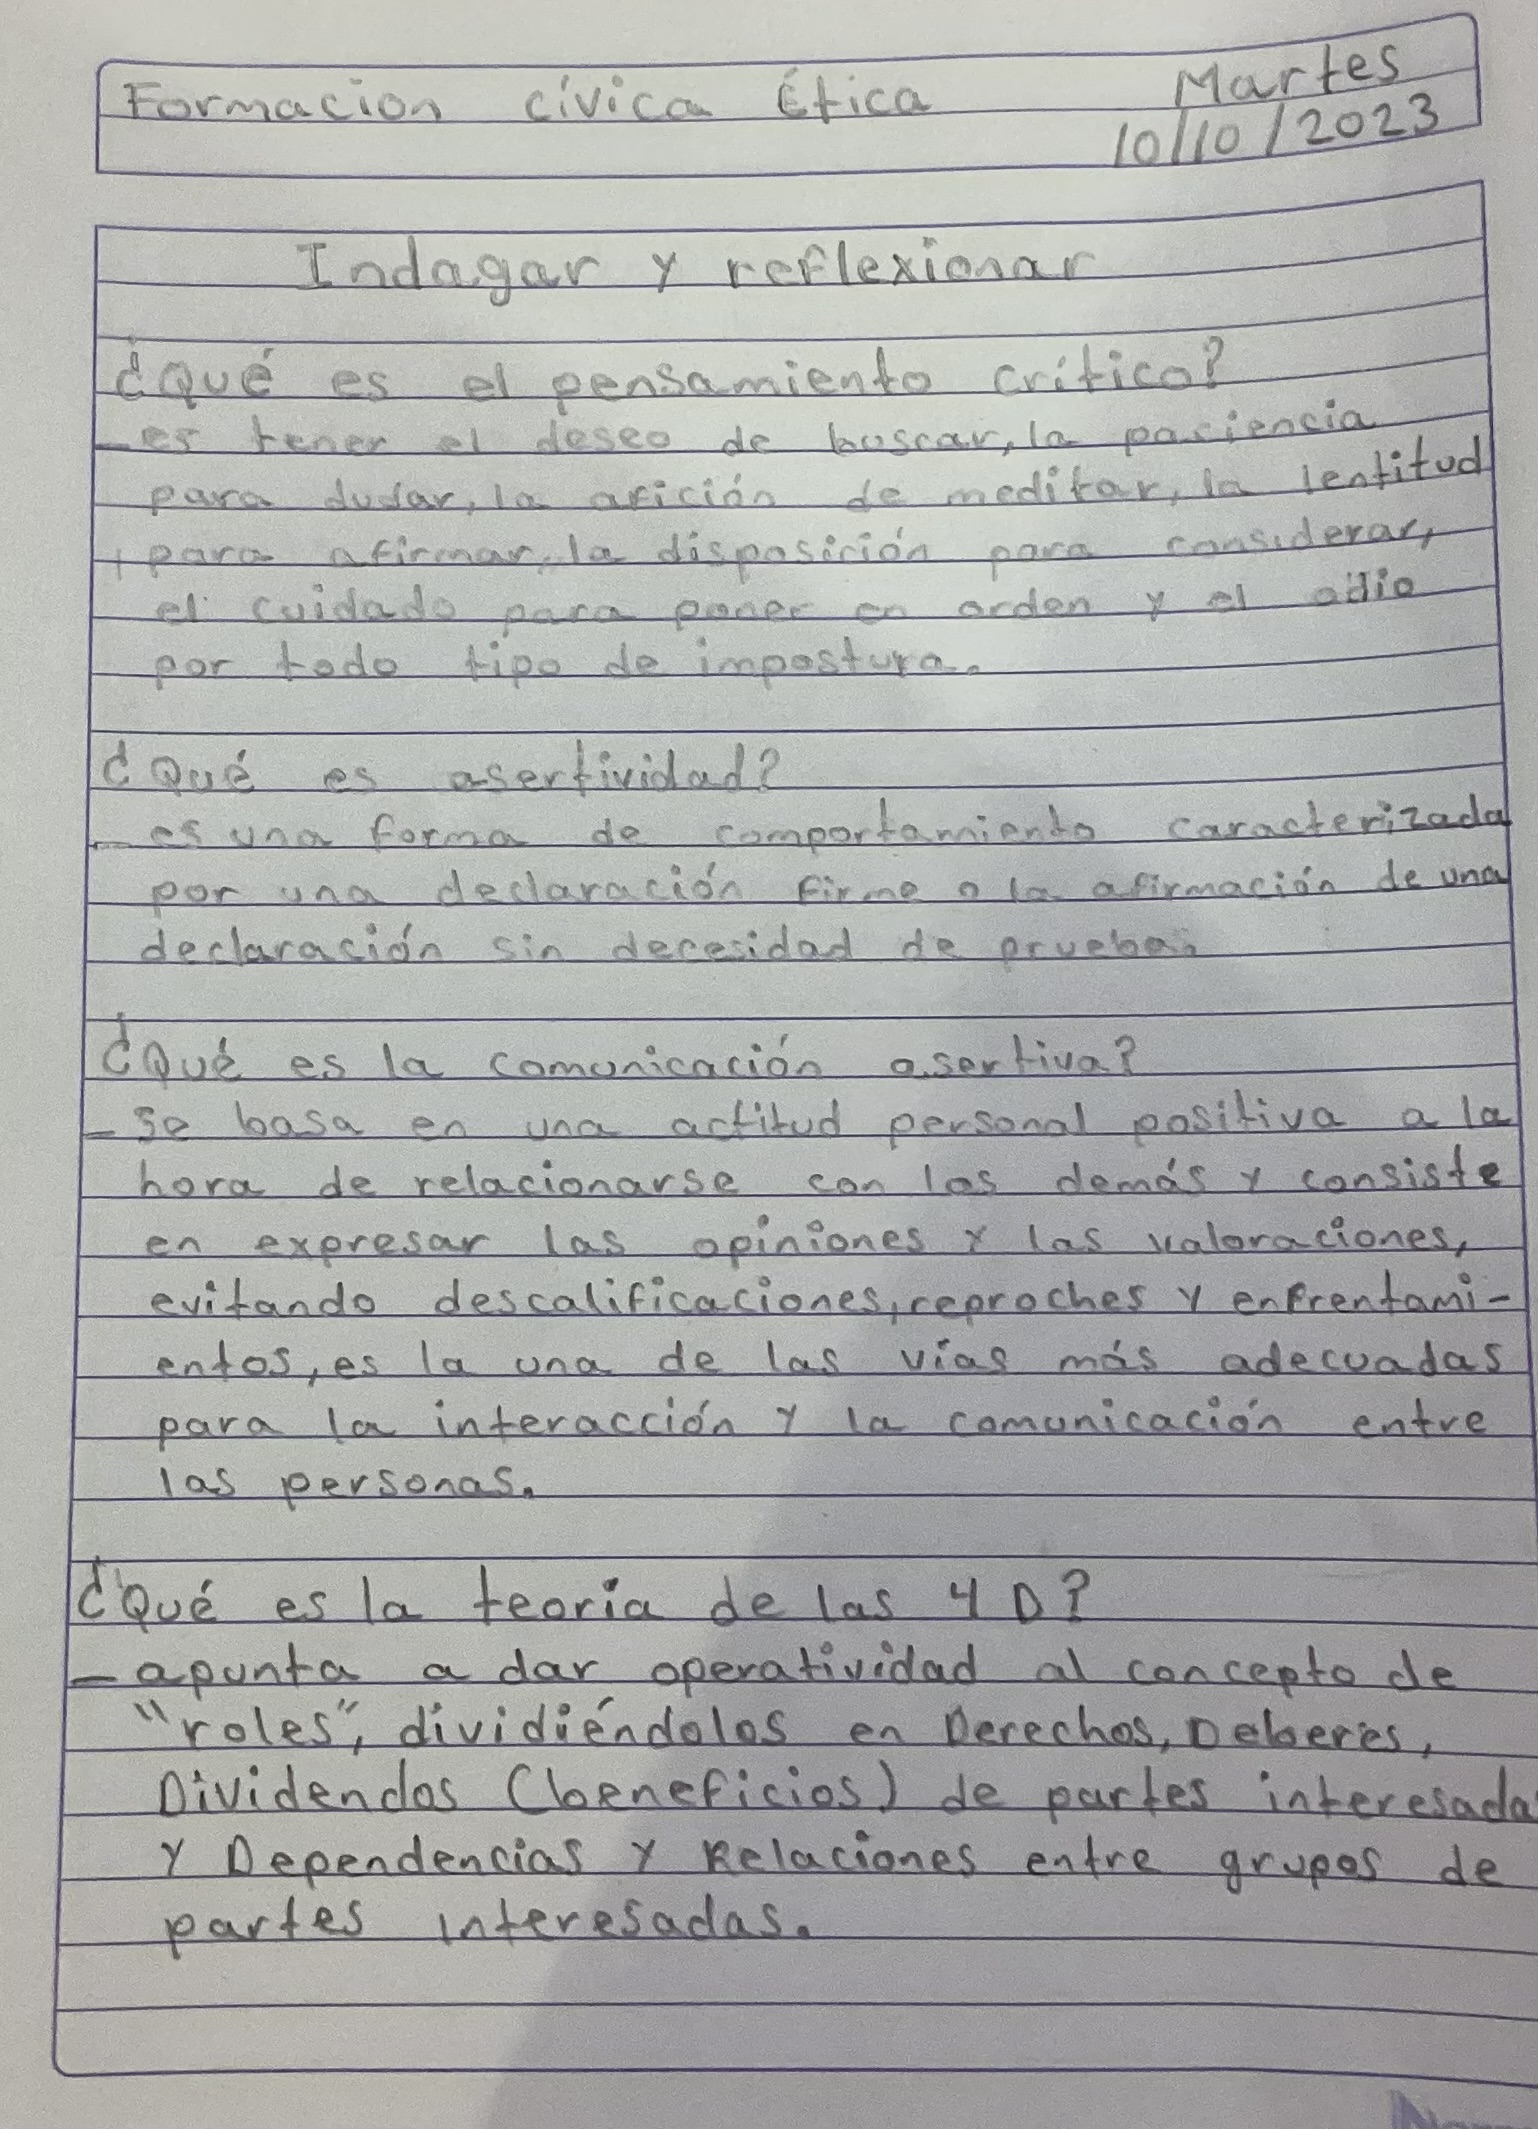 Formacion cívica Ética Martes
10/10/2023
Indagar y reflexionar
¿Qué es el pensamiento crítico?
- es tener el deseo de buscar, la paciencia
para dudar, la afición de meditar, la lentitud
para afirmar, la disposición para considerar,
el cuidado para poner en orden y el odio
por todo tipo de impostura.
¿Qué es asertividad?
- es una forma de comportamiento caracterizada
por una declaración firme o la afirmación de una
declaración sin decesidad de prueba.
¿Qué es la comunicación asertiva?
- Se basa en una actitud personal positiva a la
hora de relacionarse con los demás y consiste
en expresar las opiniones y las valoraciones,
evitando descalificaciones, reproches y enfrentami-
entos, es la una de las vías más adecuadas
para la interacción y la comunicación entre
las personas.
¿Qué es la teoría de las 4 D?
- apunta a dar operatividad al concepto de
"roles", dividiéndolos en Derechos, Deberes,
Dividendos (beneficios) de partes interesada
y Dependencias y Relaciones entre grupos de
partes interesadas.